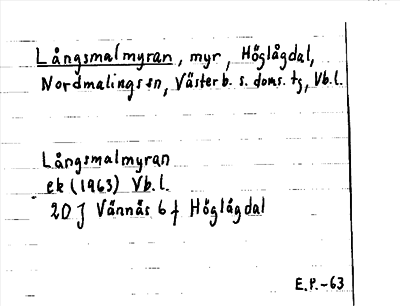 Långsmalmyran, myr, Höglågdal,
Nordmalings sn, Västerb. s. doms. tj, Vb.l.
Långsmalmyran
ek (1963) Vb.l.
20 J Vännäs 6 f Höglågdal
E.P.-63